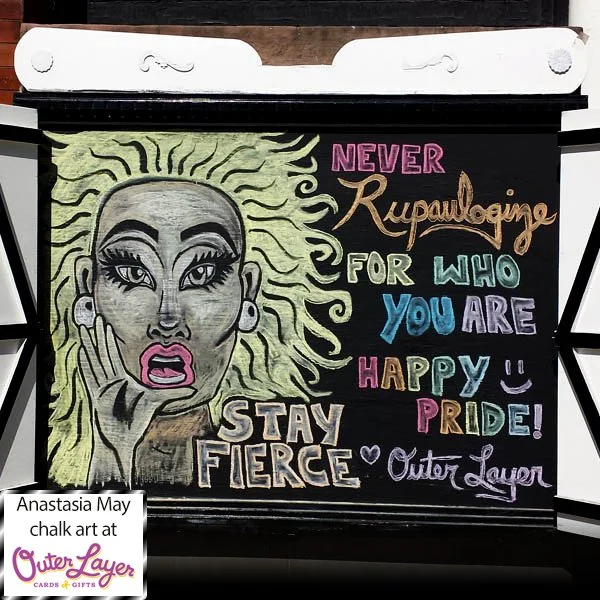 NEVER
Rupaulogize
FOR WHO
YOU ARE
HAPPY
PRIDE!
STAY
FIERCE
Outer Layer
Anastasia May
chalk art at
Outer Layer
CARDS & GIFTS